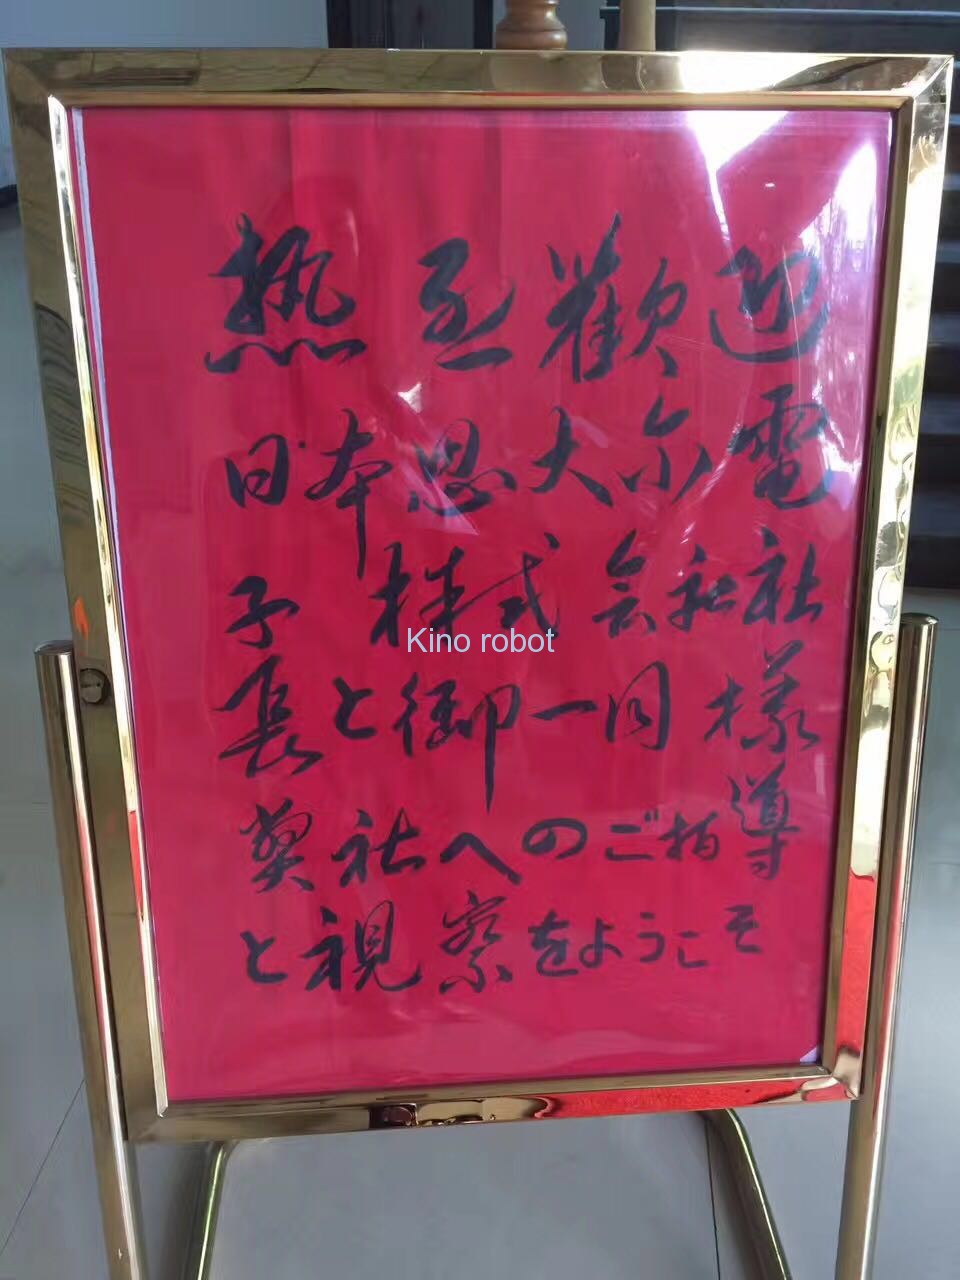 热烈歡迎
日本思大尔電
子 株式会社社
長と御一同様
弊社へのご指導
と視察をようこそ
Kino robot